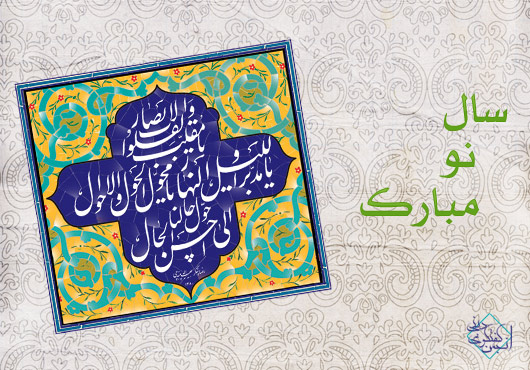 یا مقلب القلوب والابصار
یا مدبر اللیل و النهار یا محول الحول والاحوال
حول حالنا
الی احسن الحال
سال
نو
مبارک